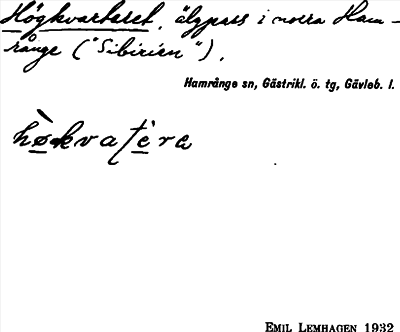 Högkvarteret, älgpass i norra Ham-
rånge ("Sibirien").
Hamrånge sn, Gästrikl. ö. tg, Gävleb. l.
hø̀kvatè̱ra
EMIL LEMHAGEN 1932